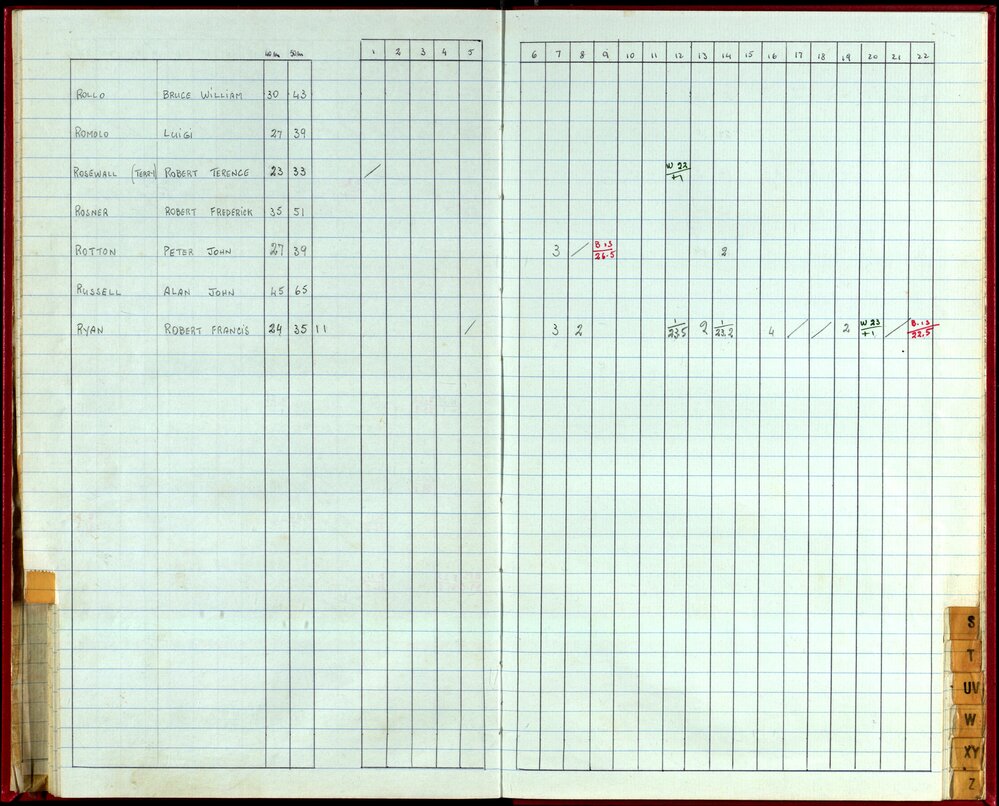 40m 50m 1 2 3 4 5 6 7 8 9 10 11 12 13 14 15 16 17 18 19 20 21 22
ROLLO BRUCE WILLIAM 30 43
ROMOLO LUIGI 27 39
ROSEWALL (TERRY) ROBERT TERENCE 23 33 / W 23 / +1
ROSNER ROBERT FREDERICK 35 51
ROTTON PETER JOHN 27 39 3 / B.13 / 26.5 2
RUSSELL ALAN JOHN 45 65
RYAN ROBERT FRANCIS 24 35 11 / 3 2 1/23.5 2 1/23.2 4 / / 2 W 23 / +1 / B.13 / 22.5
S
T
UV
W
XY
Z